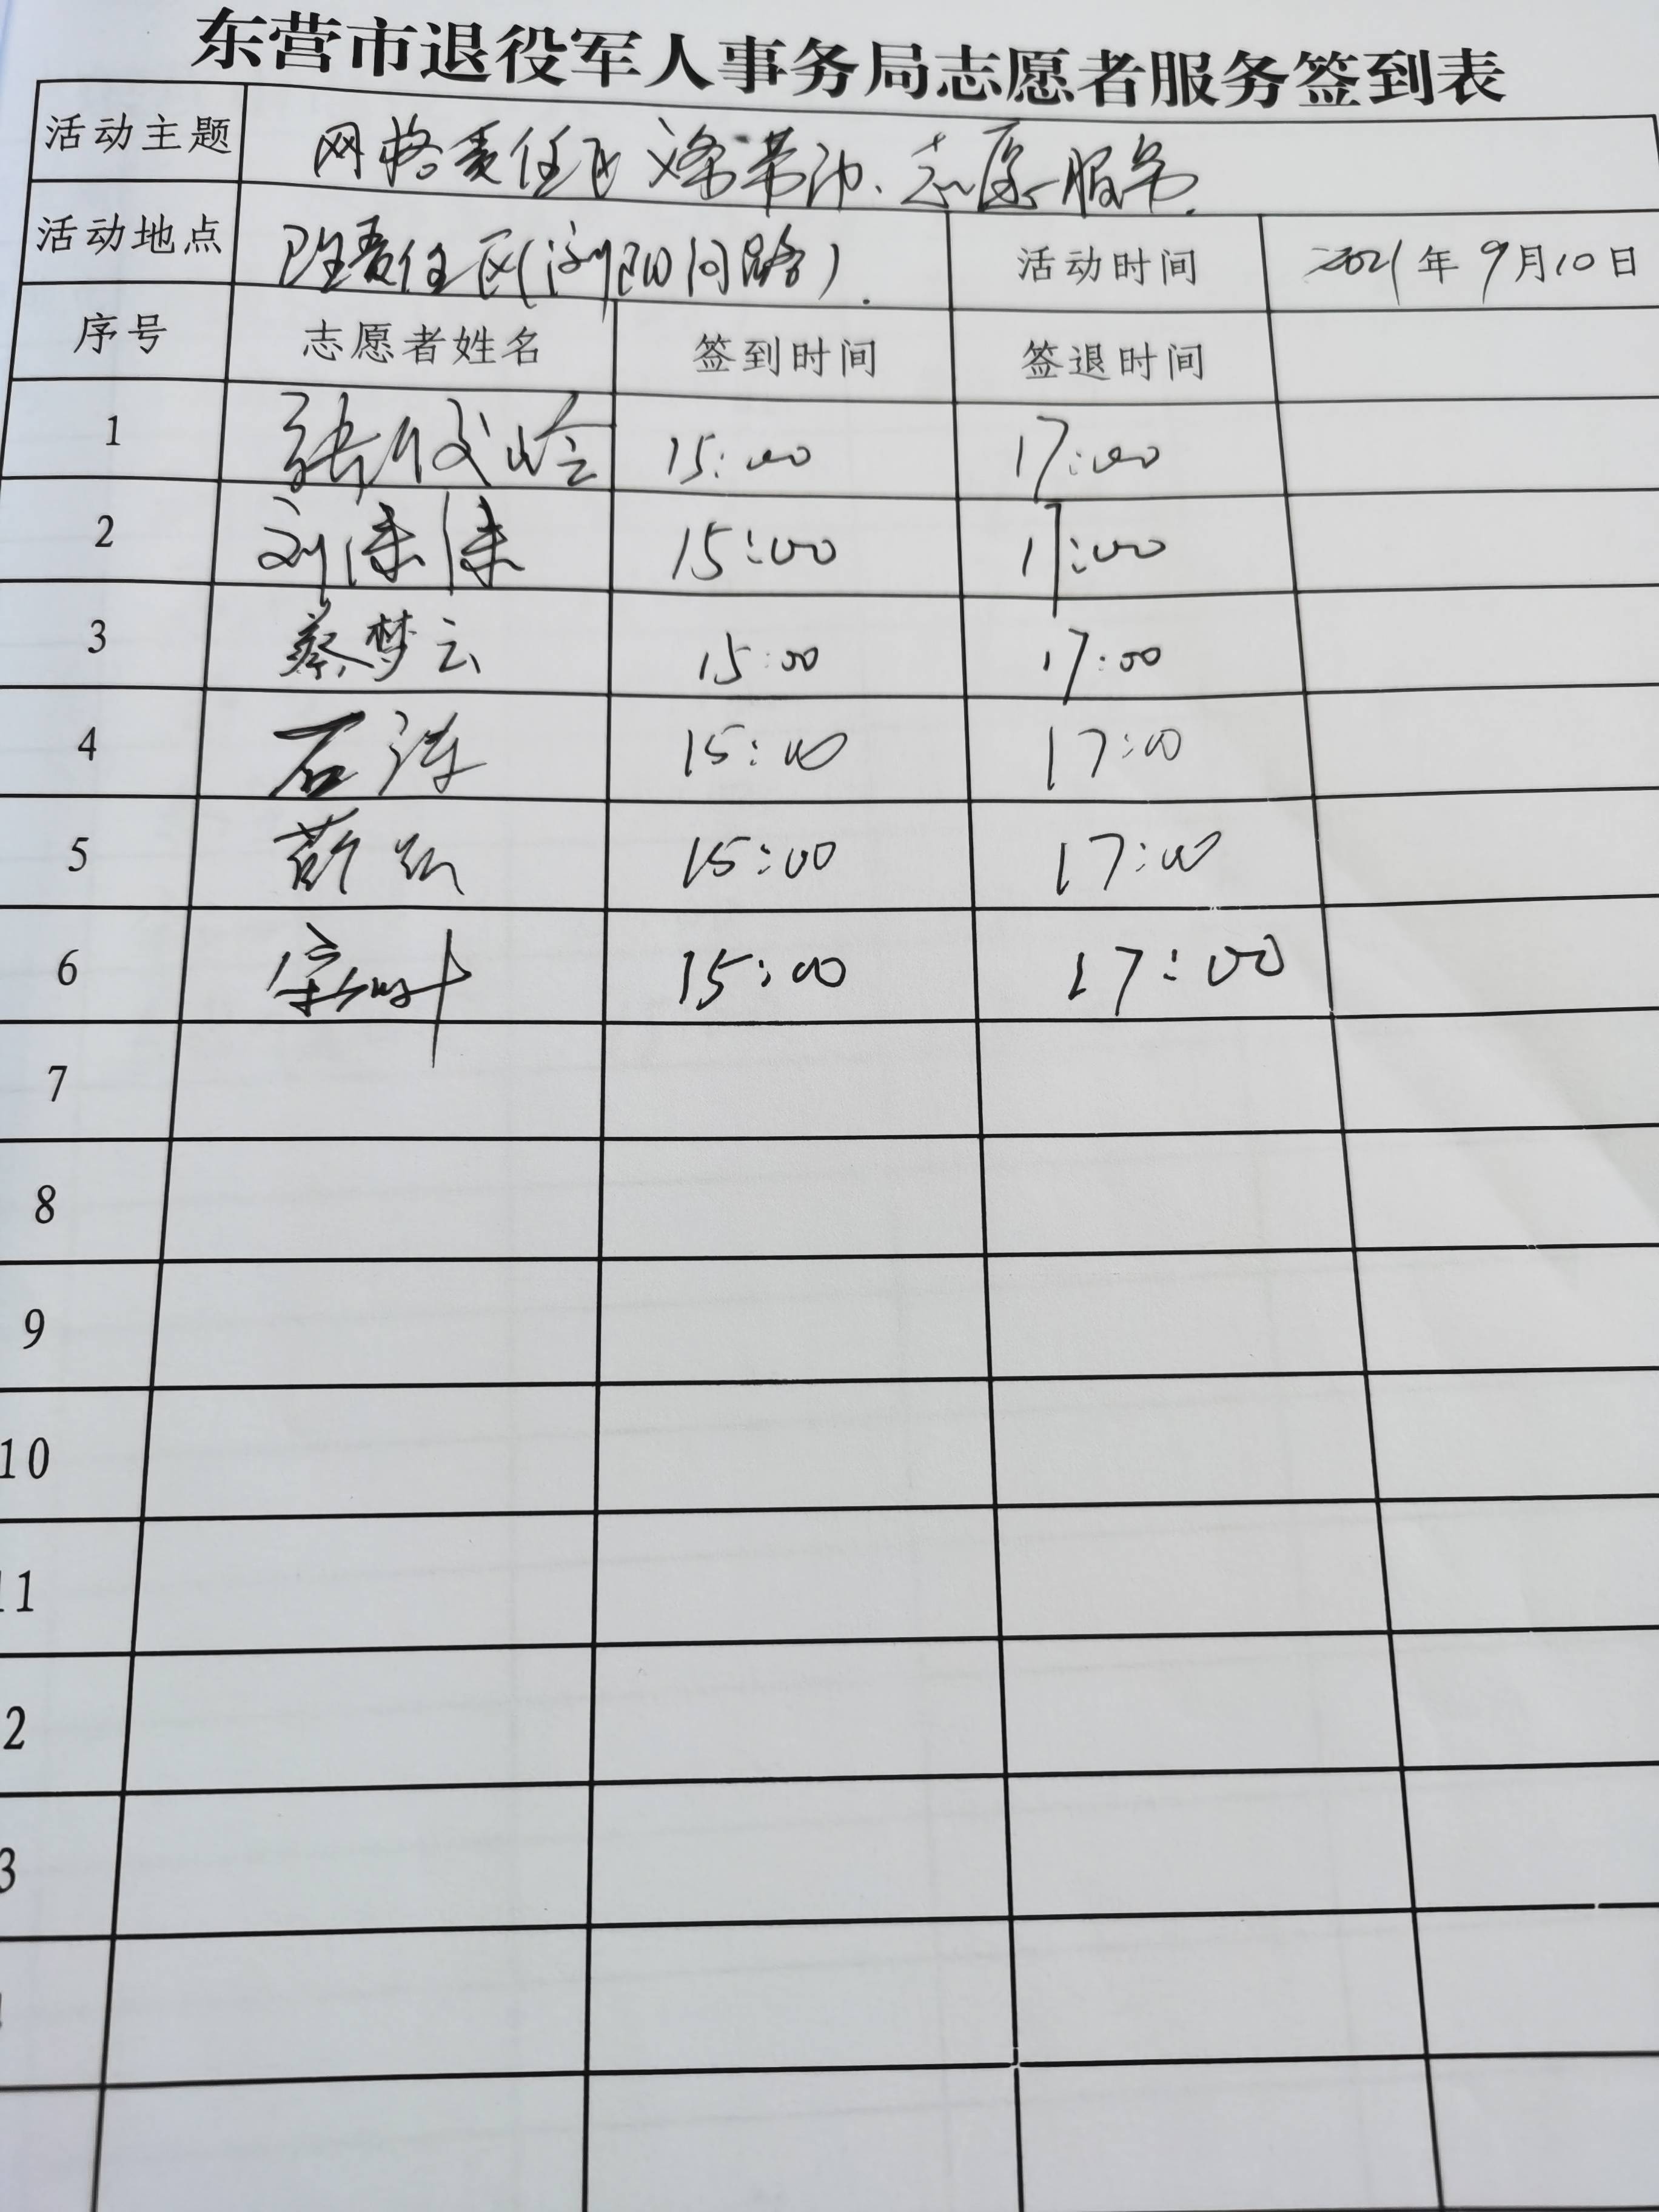 东营市退役军人事务局志愿者服务签到表
活动主题 网格责任区 志愿服务.
活动地点 责任区( 路). 活动时间 2021年9月10日
序号 志愿者姓名 签到时间 签退时间
1 张俊岭 15:00 17:00
2 刘 15:00 17:00
3 蔡梦云 15:00 17:00
4 石涛 15:00 17:00
5 15:00 17:00
6 15:00 17:00
7
8
9
10
11
2
3